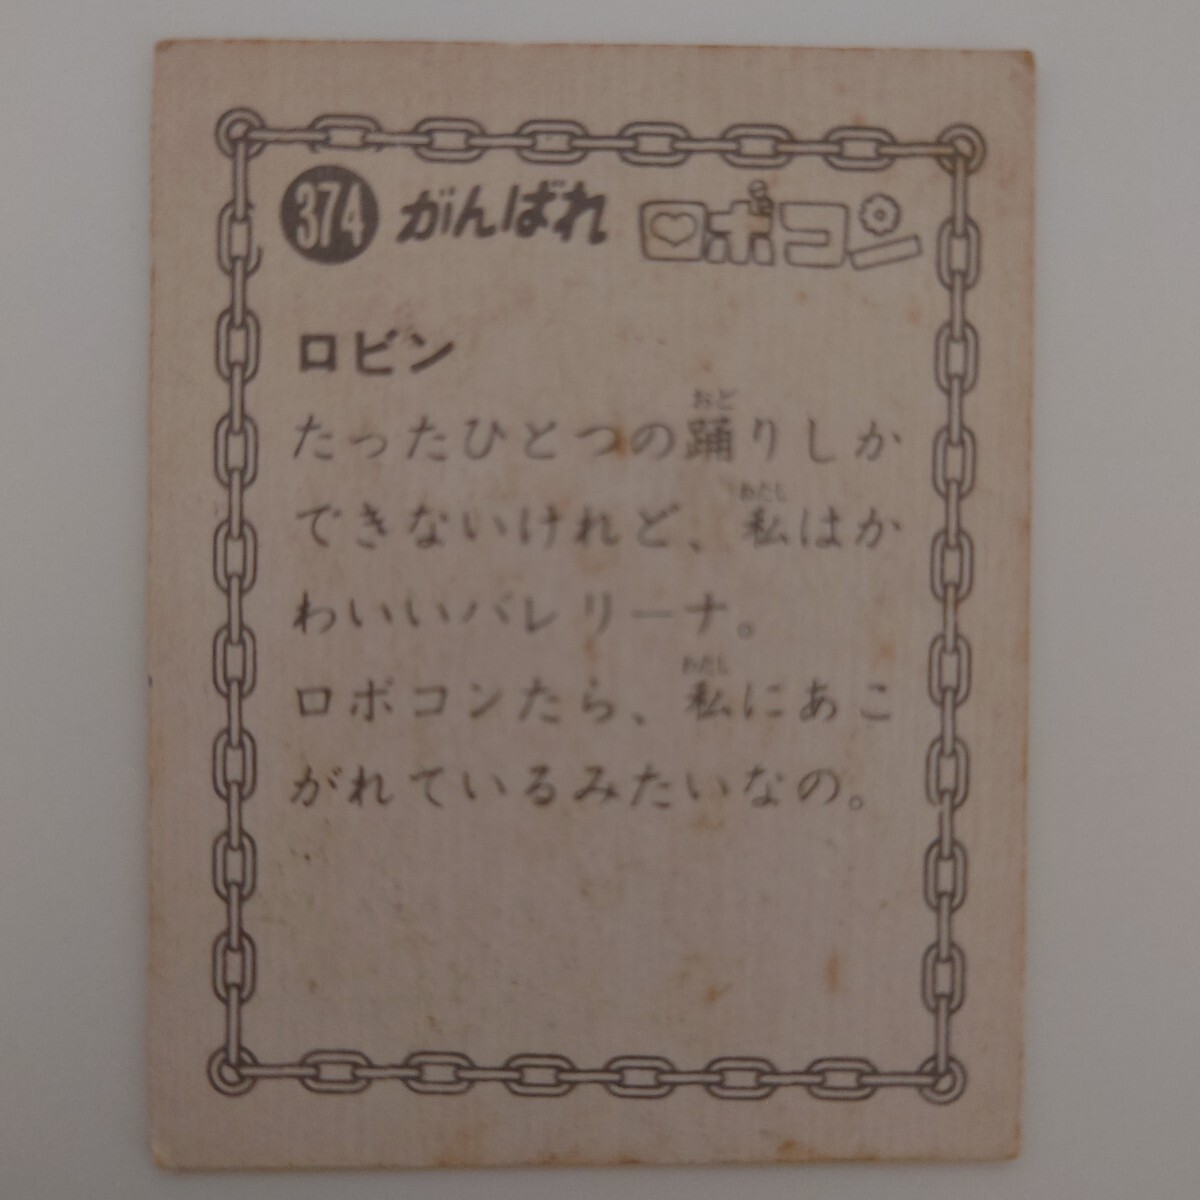 374 がんばれ ロボコン
ロビン
たったひとつの踊りしか
できないけれど、私はか
わいいバレリーナ。
ロボコンたら、私にあこ
がれているみたいなの。